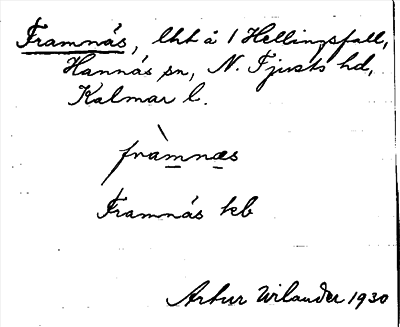 Framnäs, lht å 1 Hellingsfall,
Hannäs sn, N. Tjusts hd,
Kalmar l.
fràmnæs
Framnäs kb
Artur Wilander 1930